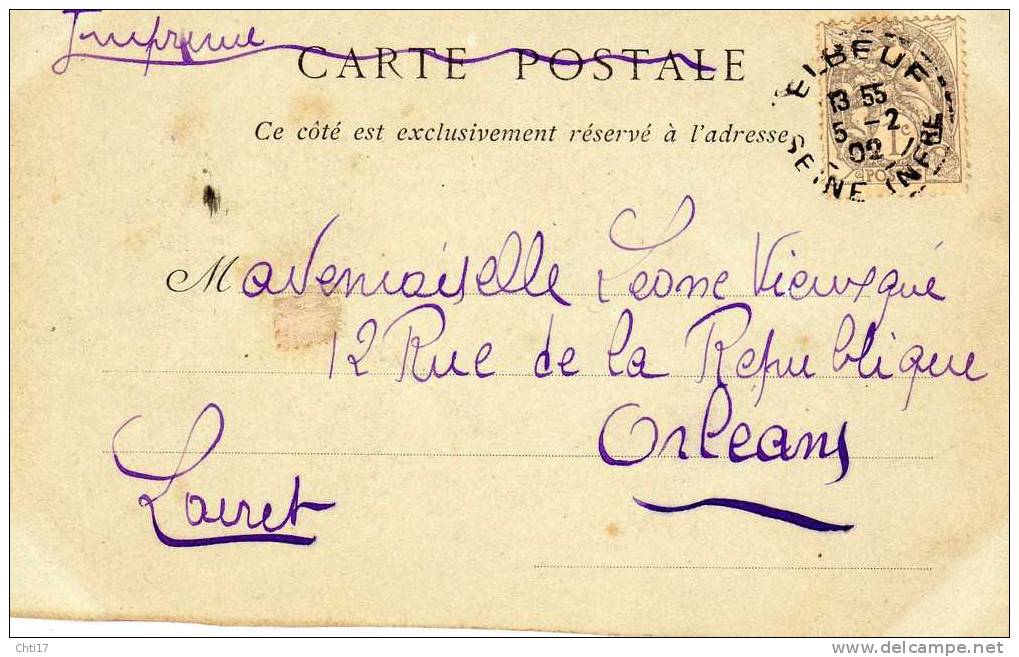 Imprimé
CARTE POSTALE
Ce côté est exclusivement réservé à l'adresse
ELBEUF
13 55
5 -2
02
SEINE INFRE
1c
POSTES
Mademoiselle Léone Vieuxgué
12 Rue de la République
Orléans
Loiret
Chti17
www.delcampe.net